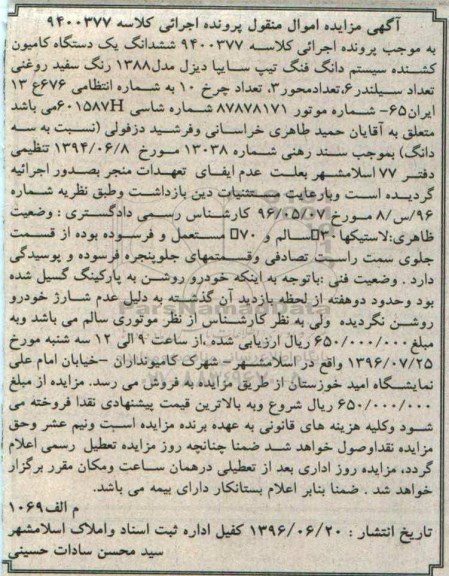 آگهی مزایده اموال منقول پرونده اجرائی کلاسه ۹۴۰۰۳۷۷
به موجب پرونده اجرائی کلاسه ۹۴۰۰۳۷۷ ششدانگ یک دستگاه کامیون
کشنده سیستم دانگ فنگ تیپ سایپا دیزل مدل۱۳۸۸ رنگ سفید روغنی
تعداد سیلندر۶،تعدادمحور۳، تعداد چرخ ۱۰ به شماره انتظامی ۶۷۶ع ۱۳
ایران۶۵- شماره موتور ۸۷۸۷۸۱۷۱ شماره شاسی ۶۰۱۵۸۷Hمی باشد
متعلق به آقایان حمید طاهری خراسانی وفرشید دزفولی (نسبت به سه
دانگ) بموجب سند رهنی شماره ۱۳۰۳۸ مورخ ۱۳۹۴/۰۶/۸ تنظیمی
دفتر ۷۷ اسلامشهر بعلت عدم ایفای تعهدات منجر بصدور اجرائیه
گردیده است وبارعایت مستثنیات دین بازداشت وطبق نظریه شماره
۹۶/س/۸ مورخ ۹۶/۰۵/۰۷ کارشناس رسمی دادگستری : وضعیت
ظاهری:لاستیکها۳۰٪سالم و ۷۰٪ مستعمل و فرسوده بوده از قسمت
جلوی سمت راست تصادفی وقسمتهای جلوپنجره فرسوده و پوسیدگی
دارد . وضعیت فنی :باتوجه به اینکه خودرو روشن به پارکینگ گسیل شده
بود وحدود دوهفته از لحظه بازدید آن گذشته به دلیل عدم شارژ خودرو
روشن نگردیده ولی به نظر کارشناس از نظر موتوری سالم می باشد وبه
مبلغ۶۵۰/۰۰۰/۰۰۰ ریال ارزیابی شده ،از ساعت ۹ الی ۱۲ سه شنبه مورخ
۱۳۹۶/۰۷/۲۵ واقع در اسلامشهر – شهرک کامیونداران –خیابان امام علی
نمایشگاه امید خوزستان از طریق مزایده به فروش می رسد. مزایده از مبلغ
۶۵۰/۰۰۰/۰۰۰ ریال شروع وبه بالاترین قیمت پیشنهادی نقدا فروخته می
شود وکلیه هزینه های قانونی به عهده برنده مزایده است ونیم عشر وحق
مزایده نقداوصول خواهد شد ضمنا چنانچه روز مزایده تعطیل رسمی اعلام
گردد، مزایده روز اداری بعد از تعطیلی درهمان ساعت ومکان مقرر برگزار
خواهد شد . ضمنا بنابر اعلام بستانکار دارای بیمه می باشد.
م الف۱۰۶۹
تاریخ انتشار : ۱۳۹۶/۰۶/۲۰ کفیل اداره ثبت اسناد واملاک اسلامشهر
سید محسن سادات حسینی